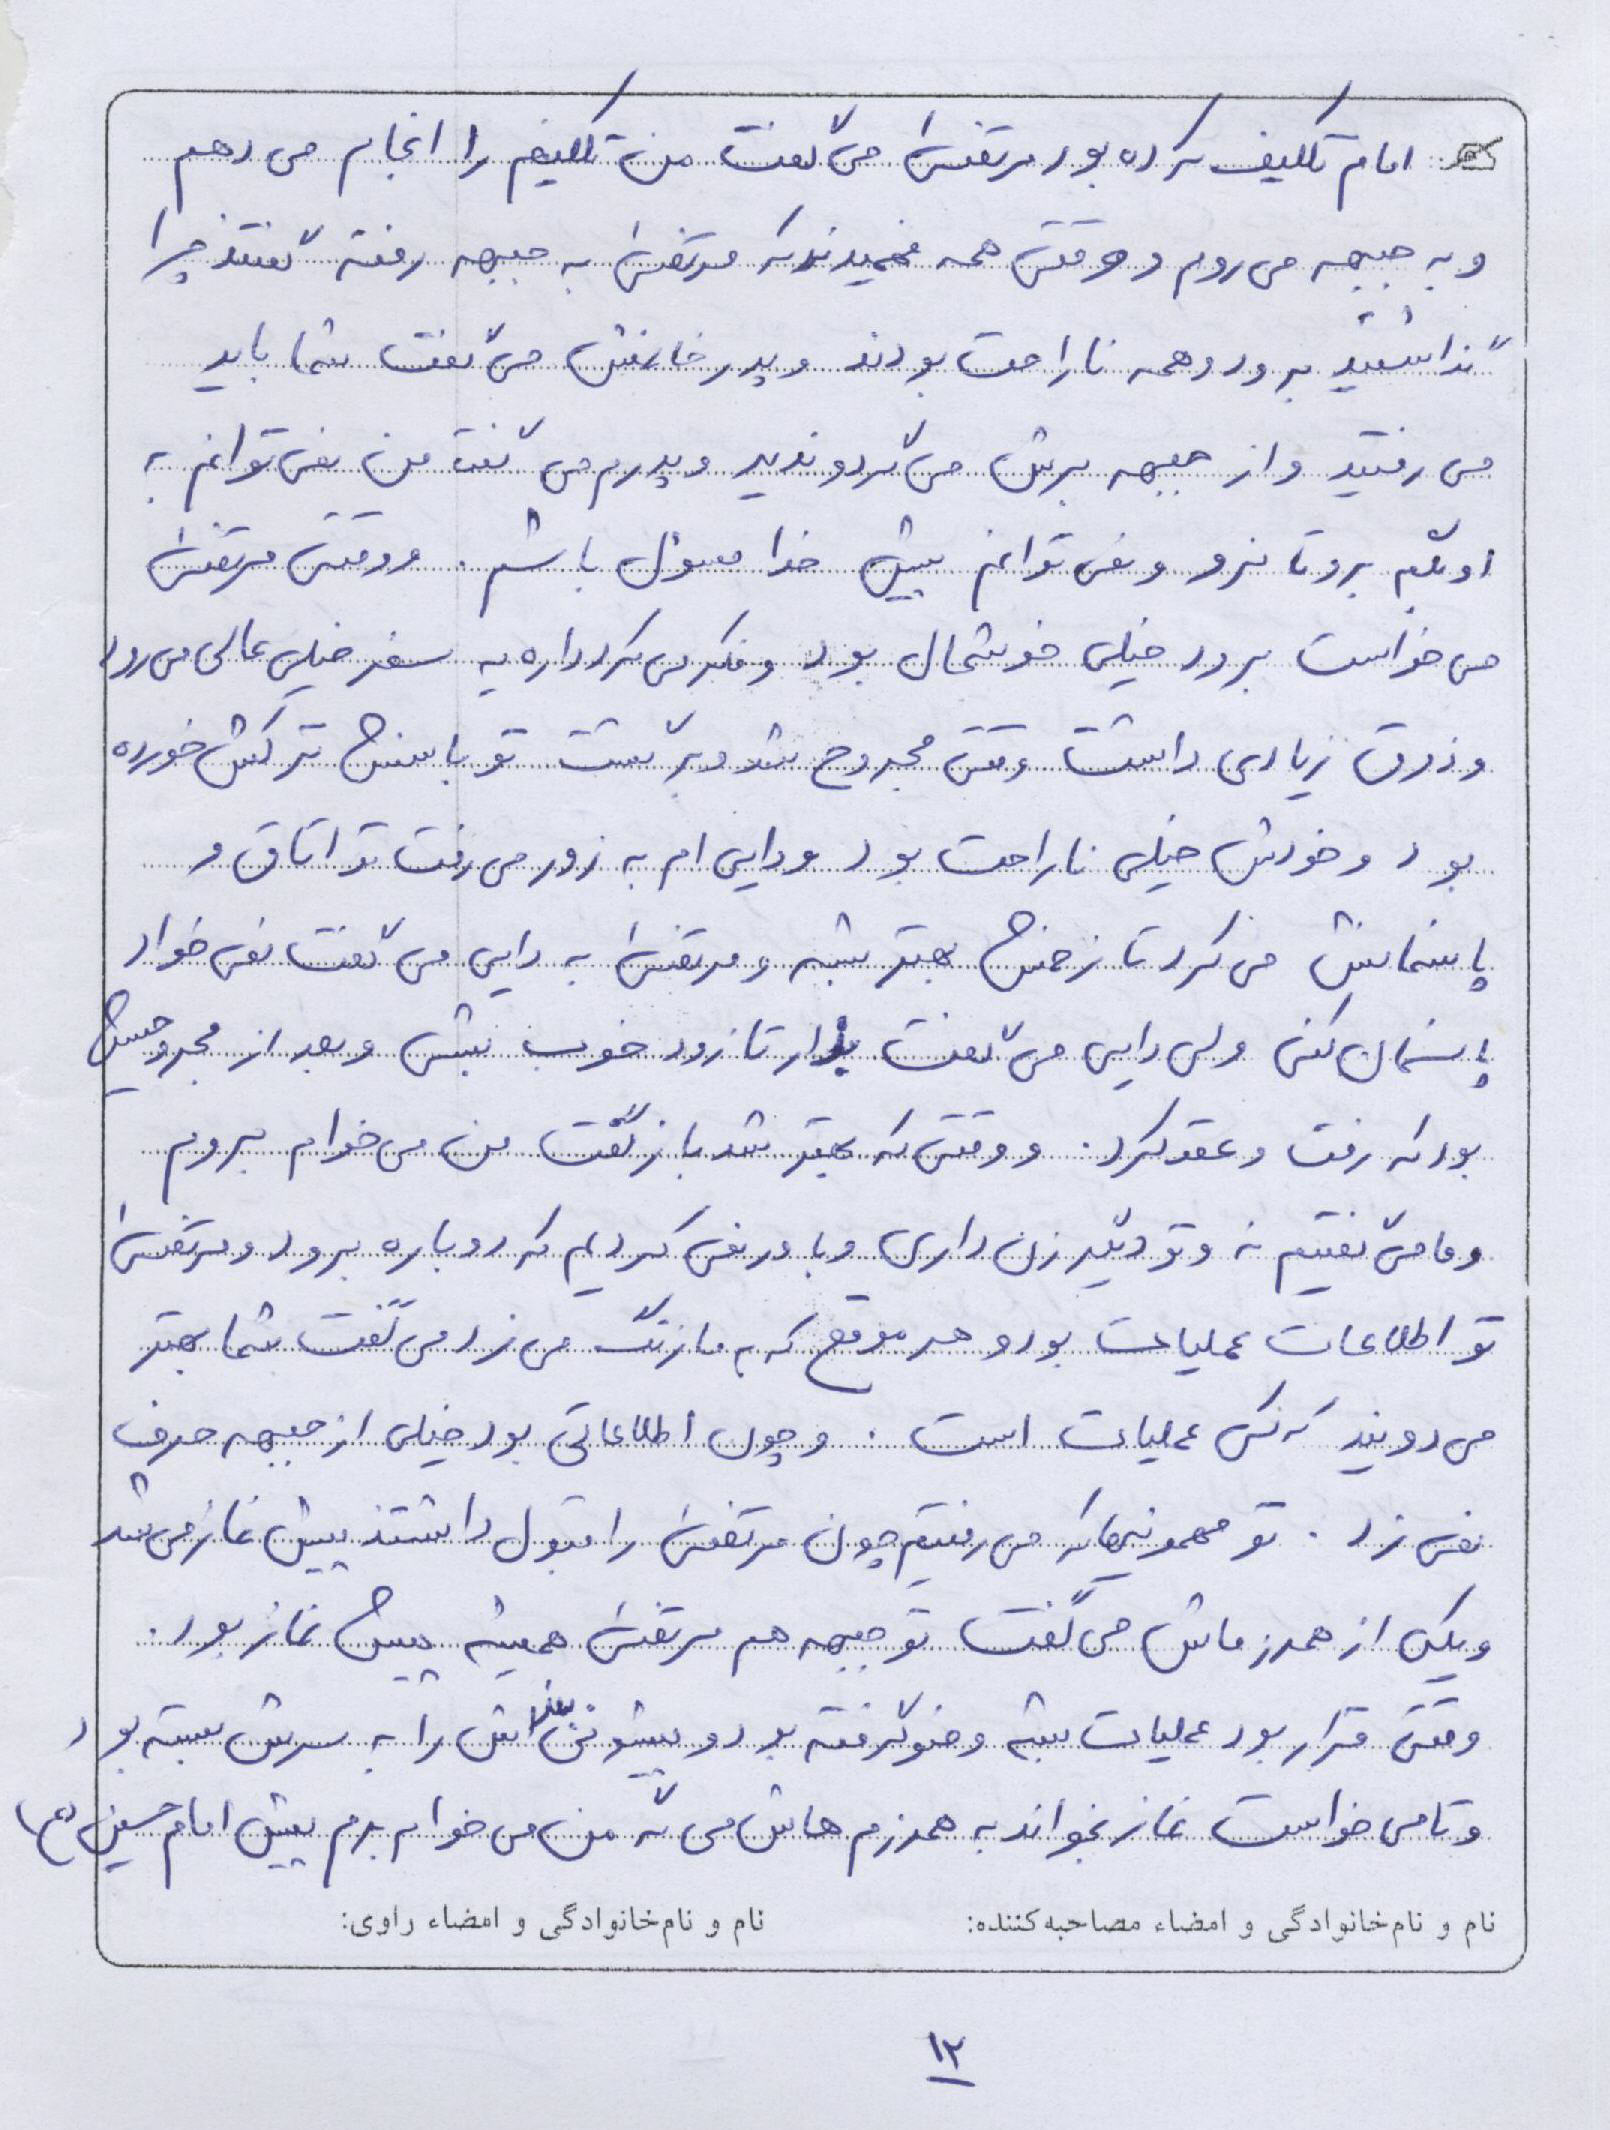 امام تکلیف کرده بود مرتضی می گفت من تکلیفم را انجام می دهم
و به جبهه می روم و وقتی همه فهمیدند که مرتضی به جبهه رفته گفتند چرا
گذاشتید برود و همه ناراحت بودند و پدر خانمش می گفت شما باید
می رفتید و از جبهه برش می گردوندید و پدرم می گفت من نمی توانم به
او بگم برو تا نرو و نمی توانم پیش خدا مسئول باشم. و وقتی مرتضی
می خواست برود خیلی خوشحال بود و فکر می کرد داره یه سفر خیلی عالی می رود
و ذوق زیادی داشت وقتی مجروح شد و برگشت تو باسنش ترکش خورده
بود و خودش خیلی ناراحت بود و دایی ام به زور می رفت تو اتاق و
پانسمانش می کرد تا زخمش بهتر بشه و مرتضی به دایی می گفت نمی خواد
پانسمان کنی ولی دایی می گفت بذار تا زود خوب بشی و بعد از مجروحیتش
بود که رفت و عقد کرد. و وقتی که بهتر شد باز گفت من می خوام بروم
و ما می گفتیم نه و تو دیگر زن داری و باور نمی کردیم که دوباره برود و مرتضی
تو اطلاعات عملیات بود و هر موقع که به ما زنگ می زد می گفت شما بهتر
می دونید که کی عملیات است. و چون اطلاعاتی بود خیلی از جبهه حرف
نمی زد. تو مهمونیها که می رفتیم چون مرتضی را قبول داشتند پیش نماز می شد
و یکی از همرزماش می گفت تو جبهه هم مرتضی همیشه پیش نماز بود.
وقتی قرار بود عملیات بشه وضو گرفته بود و پیشونی بند اش را به سرش بسته بود
و تا می خواست نماز بخواند به همرزم هاش می گه من می خوام برم پیش امام حسین (ع)
نام و نام‌خانوادگی و امضاء مصاحبه‌کننده: نام و نام‌خانوادگی و امضاء راوی:
۱۲